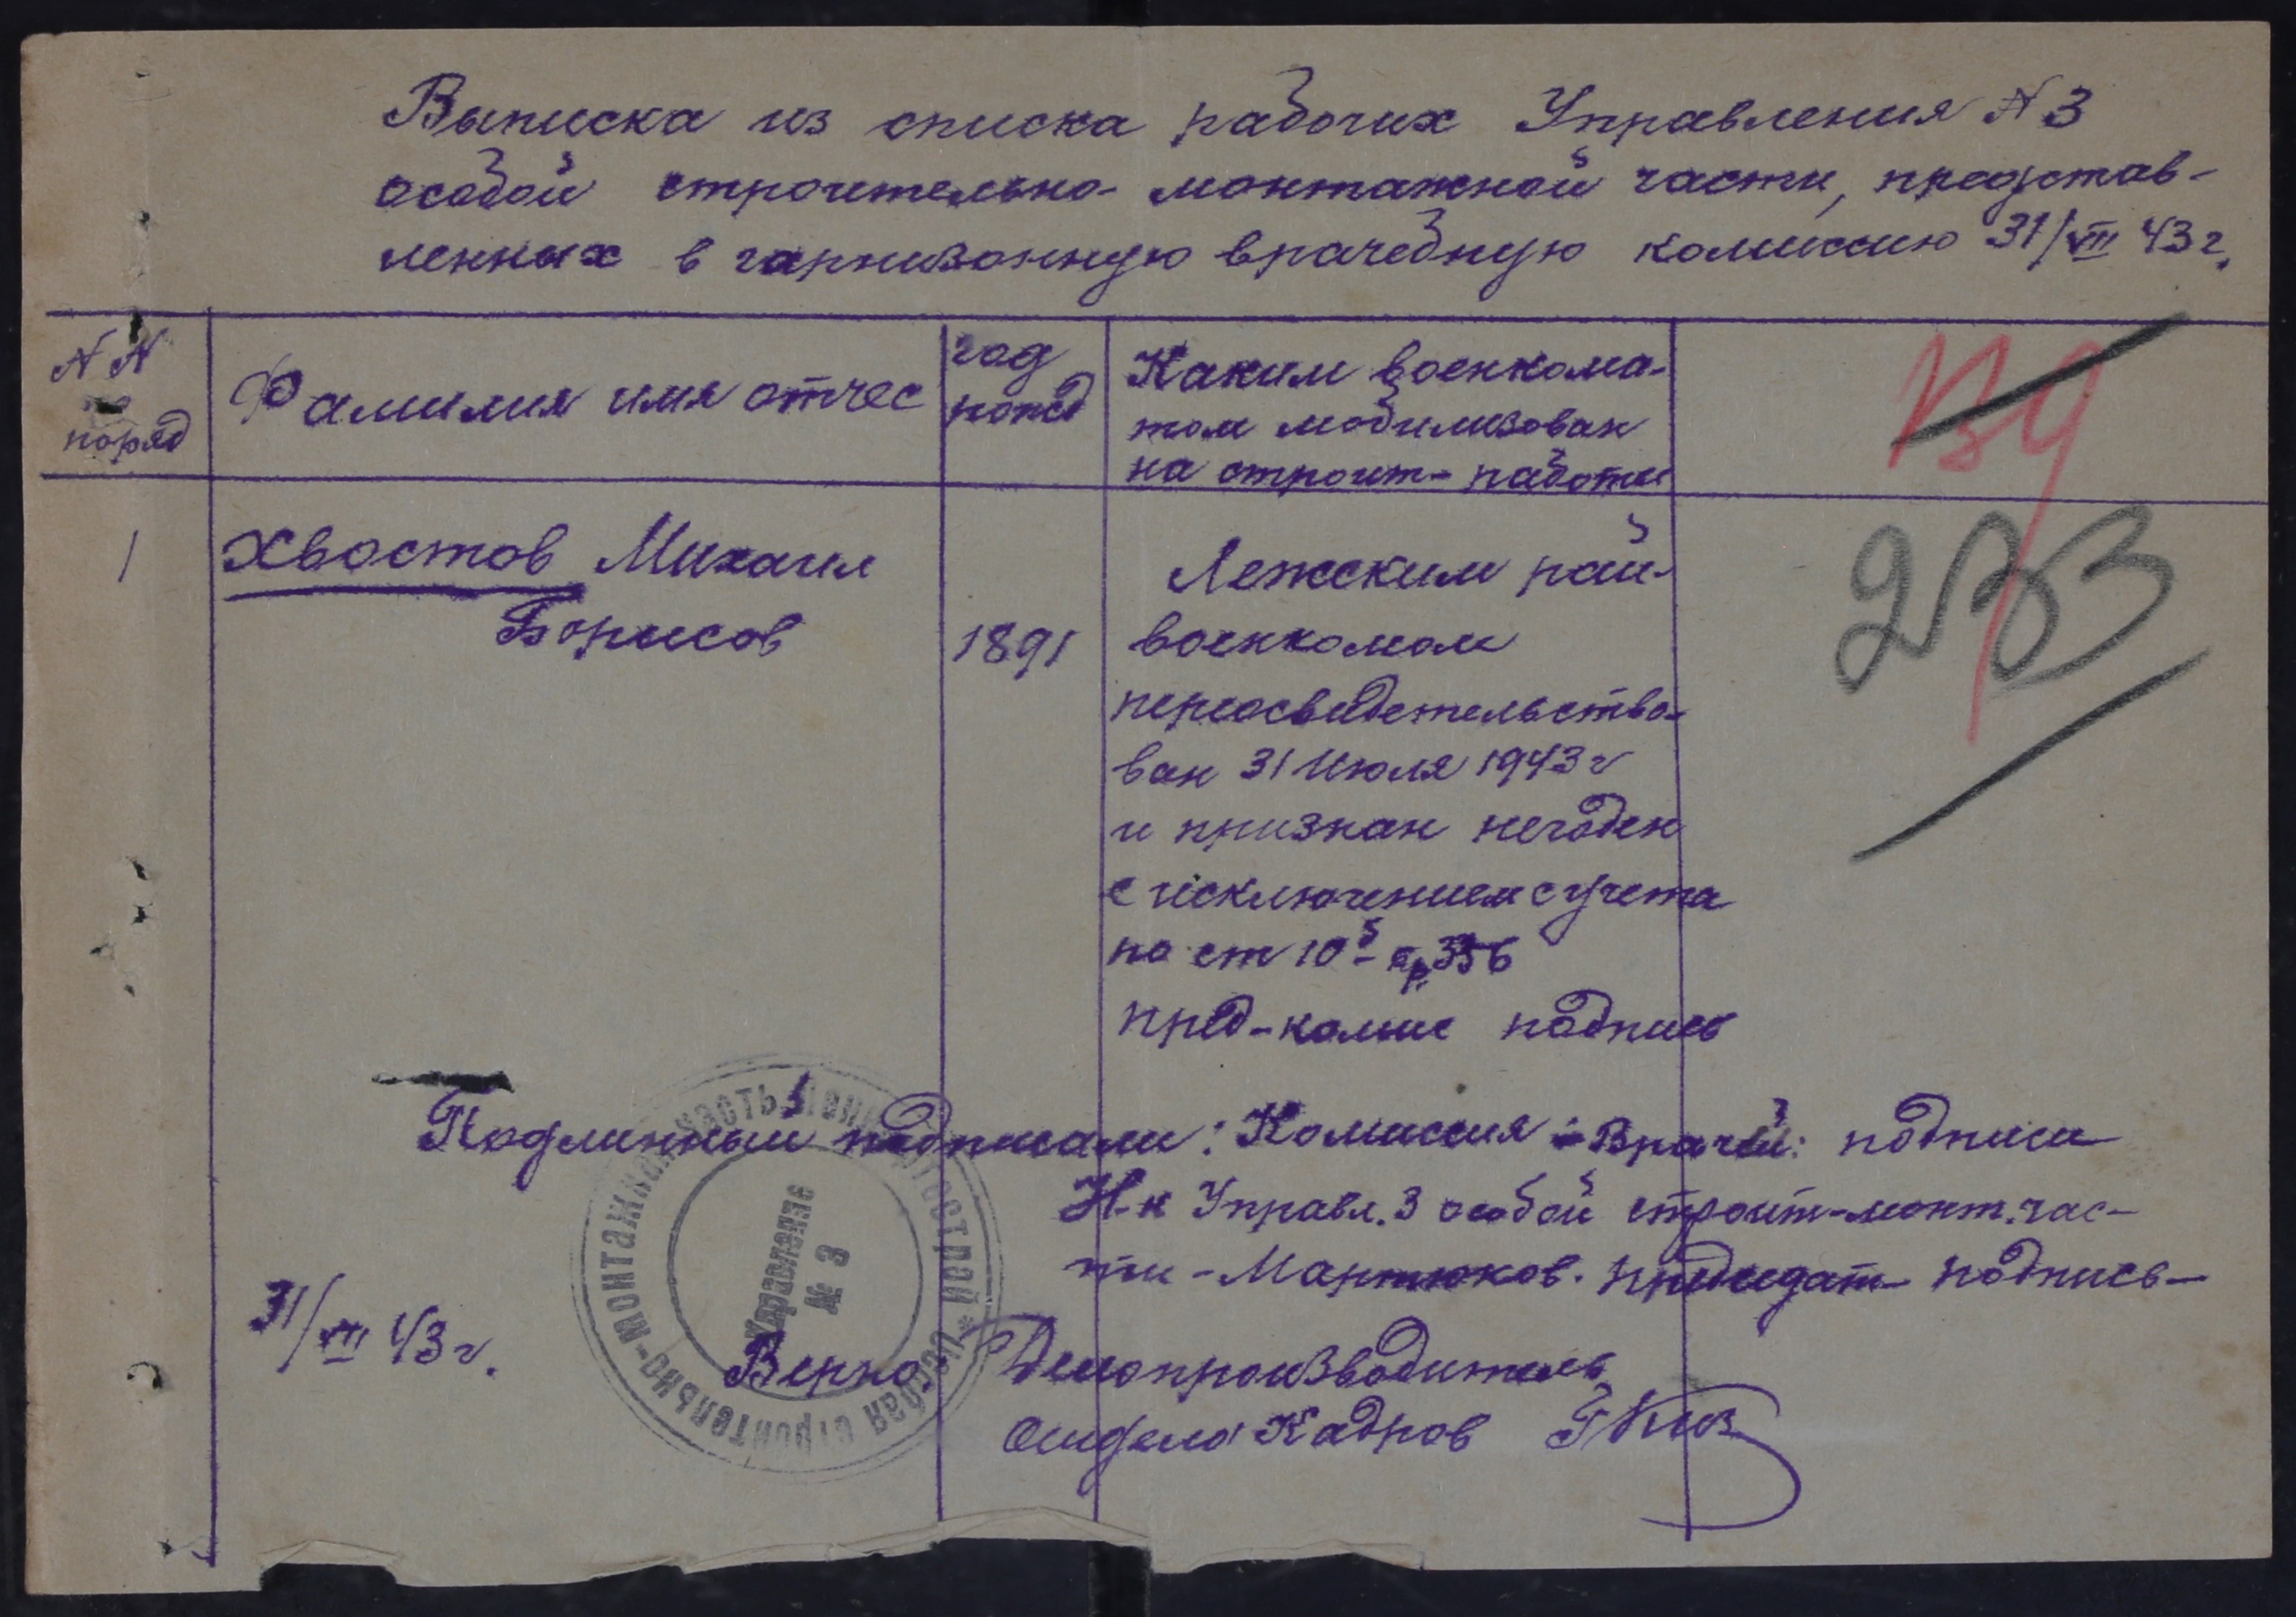 Выписка из списка рабочих Управления N 3
особой строительно-монтажной части, представ-
ленных в гарнизонную врачебную комиссию 31/VII 43 г.
N N
по
поряд
Фамилия имя отчес
год
рожд
Каким военкома-
том мобилизован
на строит- работы
1
Хвостов Михаил
Борисов
1891
Лежским рай-
военкомом
переосвидетельство-
ван 31 Июля 1943 г
и признан негоден
с исключением с учета
по ст 10й пр 336
пред-комис подпись
233
Подлинный подписали: Комиссия - Врачей: подписи
Н-к Управл. 3 особой строит-монт. час-
ти - Мартюков. председат- подпись-
31/VII 43 г.
Верно: Делопроизводитель
отдела Кадров
Особая строительно-монтажная часть
Управление
№ 3